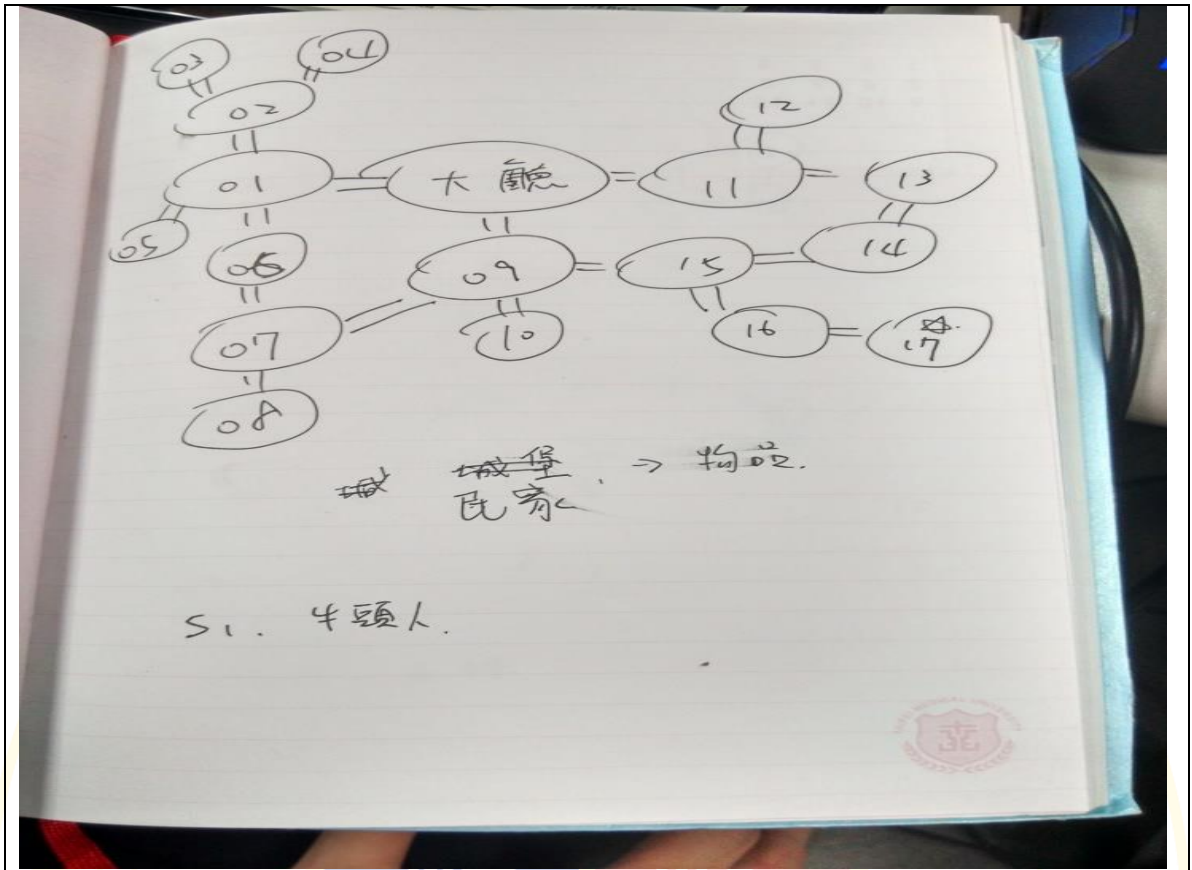 03 04
02 12
01 大廳 11 13
05 06 09 15 14
07 10 16 17
08
城 城堡 → 物證.
民家
S1. 牛頭人.